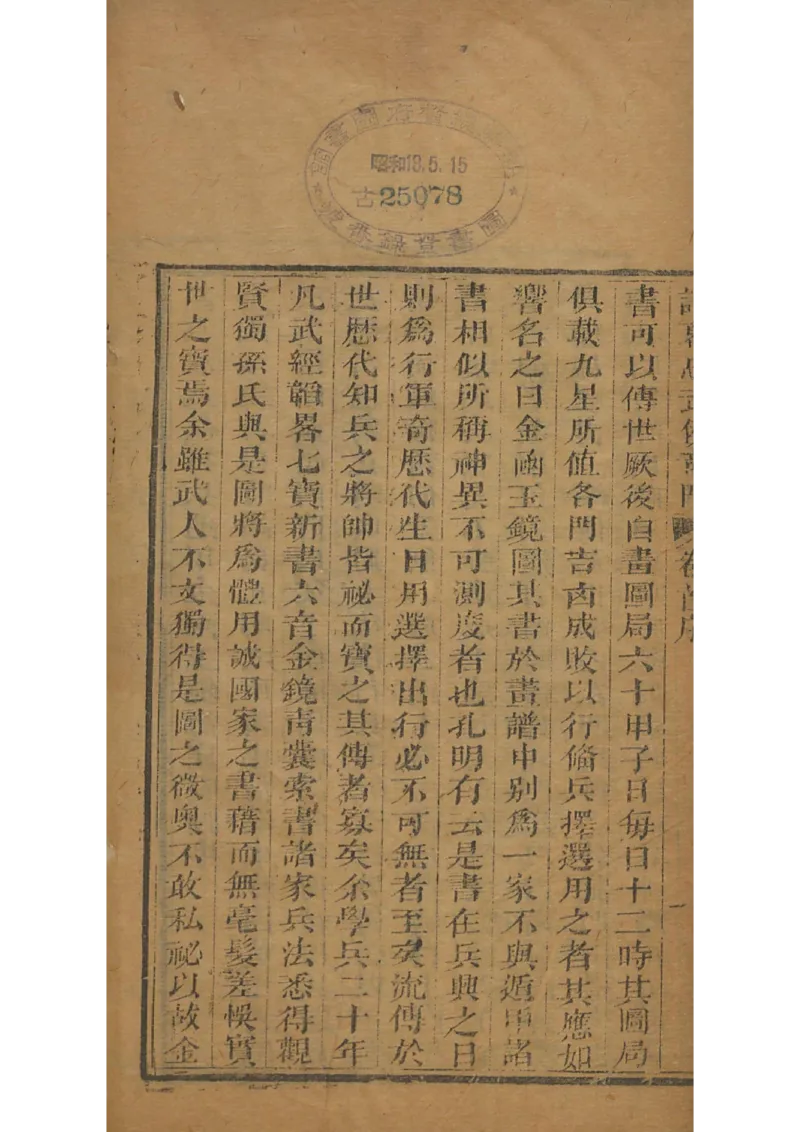 昭和18.5.15
古25078
書可以傳世厥後自畫圖局六十甲子日每日十二時其圖局
俱載九星所值各門吉凶成敗以行俻兵擇選用之者其應如
響名之曰金函玉鏡圖其書於畫譜中别爲一家不與遁甲諸
書相似所稱神異不可測度者也孔明有云是書在兵興之日
則爲行軍竒歷代生日用選擇出行必不可無者至矣流傳於
世歷代知兵之將帥皆祕而寶之其傳者寡矣余學兵二十年
凡武經韜畧七寶新書六音金鏡青囊索書諸家兵法悉得觀
賢獨孫氏與是圖將爲體用誠國家之書藉而無毫髮差悞寳
世之寳焉余雖武人不文獨得是圖之微奥不敢私祕以故金